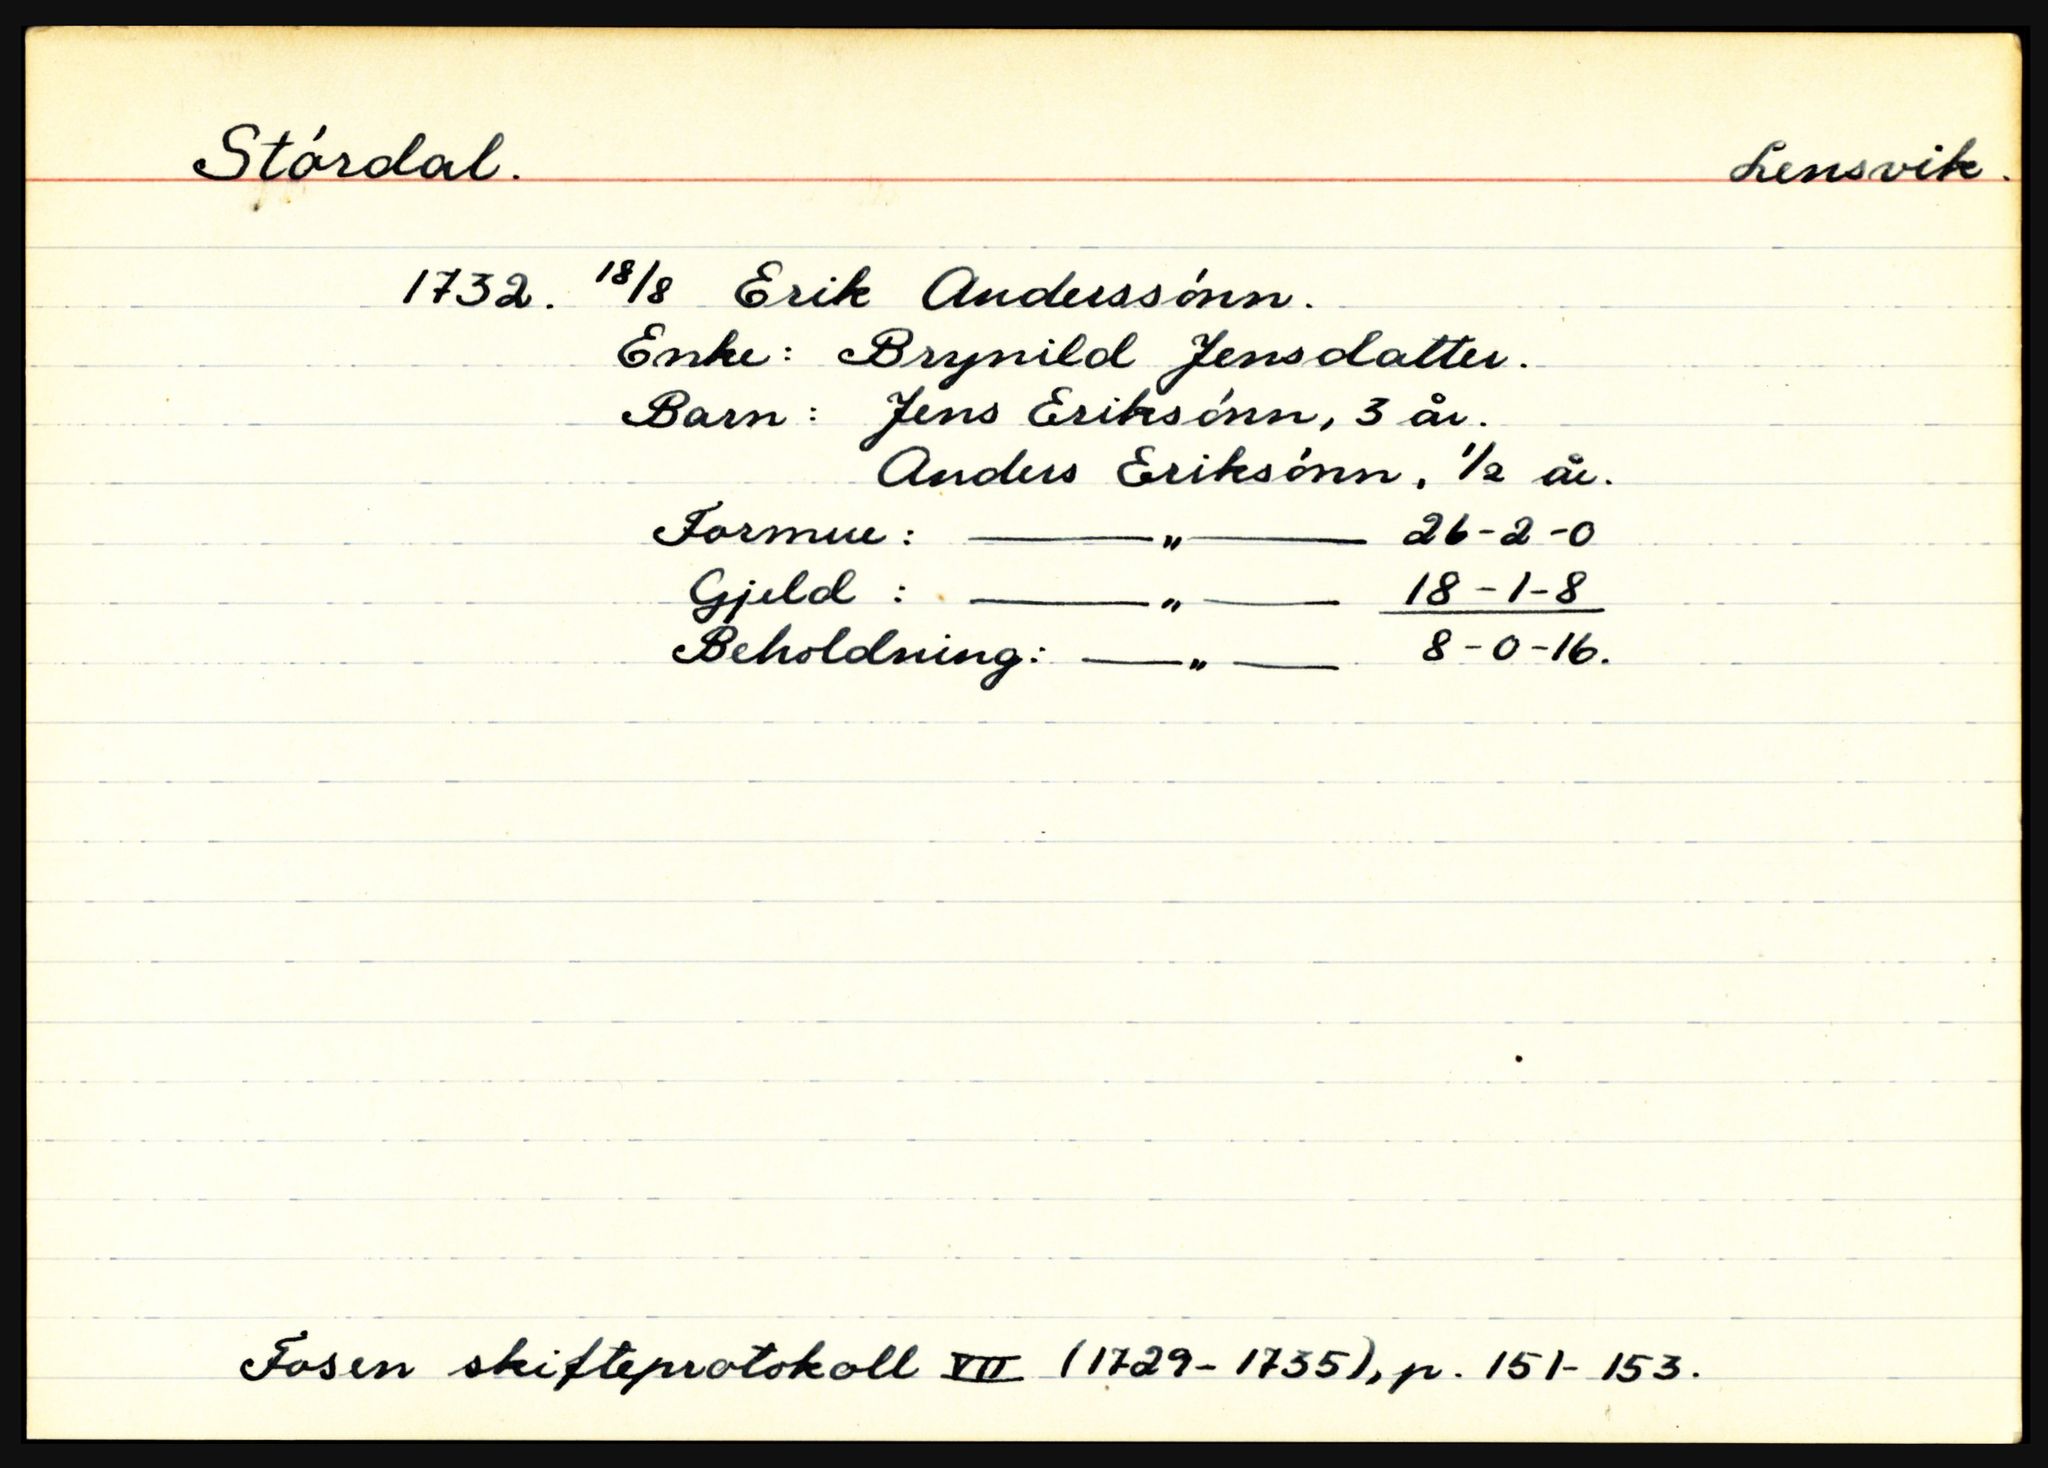 Stórdal. Lensvik.
1732. 18/8 Erik Anderssónn.
Enke: Brynild Jensdatter.
Barn: Jens Eriksónn, 3 år.
Anders Eriksónn, 1/2 år.
Formue: —— " —— 26-2-0
Gjeld : —— " —— 18-1-8
Beholdning: —— " —— 8-0-16.
Fosen skifteprotokoll VII (1729-1735), p. 151-153.